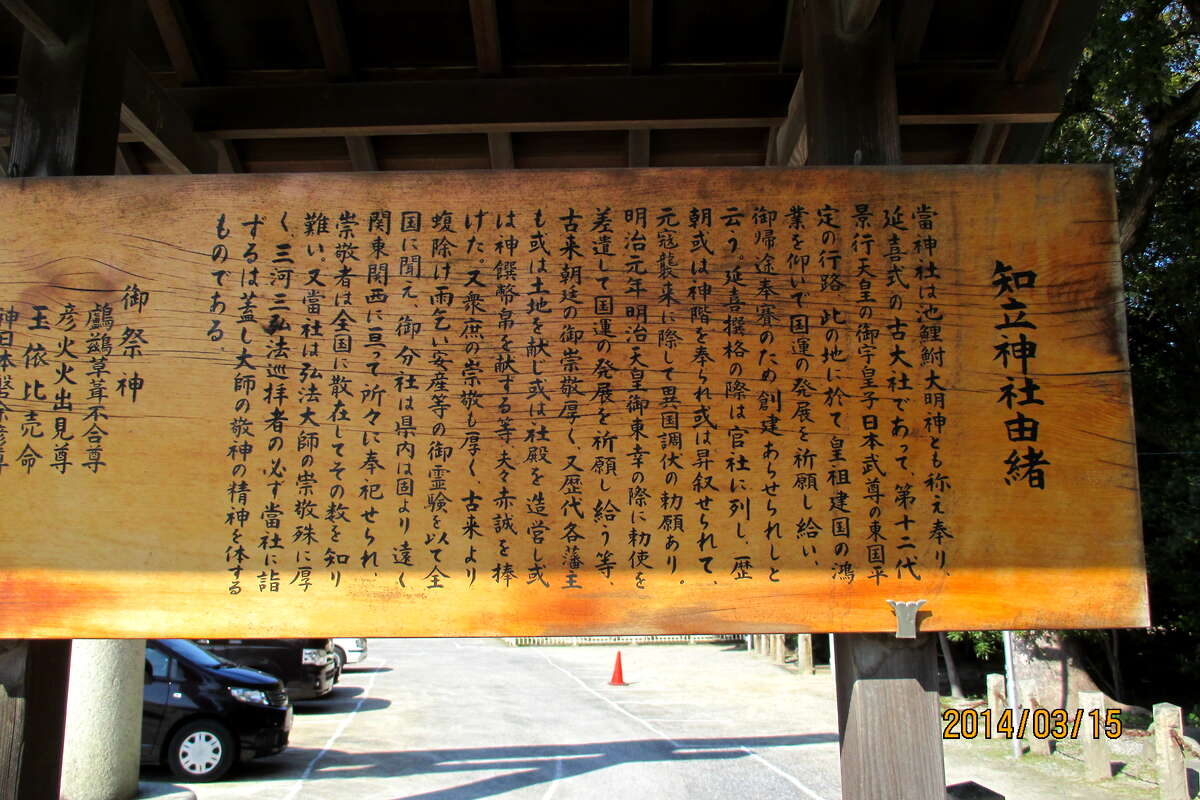 知立神社由緒
當神社は池鯉鮒大明神とも称え奉り、
延喜式の古大社であって、第十二代
景行天皇の御宇皇子日本武尊の東国平
定の行路、此の地に於て皇祖建国の鴻
業を仰いで国運の発展を祈願し給い、
御帰途奉賽のため創建あらせられしと
云う。延喜撰格の際は官社に列し、歴
朝或は神階を奉られ或は昇叙せられて、
元寇襲来に際して異国調伏の勅願あり。
明治元年明治天皇御東幸の際に勅使を
差遣して国運の発展を祈願し給う等、
古来朝廷の御崇敬厚く、又歴代各藩主
も或は土地を献じ或は社殿を造営し或
は神饌幣帛を献ずる等夫々赤誠を捧
げた。又衆庶の崇敬も厚く、古来より
蝮除け雨乞い安産等の御霊験を以て全
国に聞え、御分社は県内は固より遠く
関東関西に亘って所々に奉祀せられ、
崇敬者は全国に散在してその数を知り
難い。又當社は弘法大師の崇敬殊に厚
く、三河三弘法巡拝者の必ず當社に詣
ずるは蓋し大師の敬神の精神を体する
ものである。
御祭神
鸕鶿草葺不合尊
彦火火出見尊
玉依比売命
神日本磐余彦尊
2014/03/15